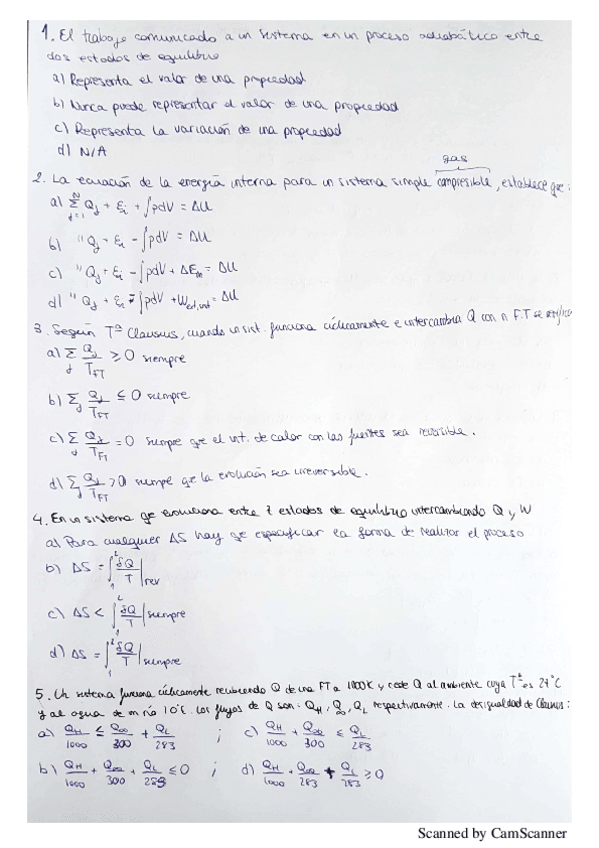 1. El trabajo comunicado a un sistema en un proceso adiabático entre
dos estados de equilibrio
a) Representa el valor de una propiedad
b) Nunca puede representar el valor de una propiedad
c) Representa la variación de una propiedad
d) N/A
gas
2. La ecuación de la energía interna para un sistema simple compresible, establece que:
a) Σ Qj + Ei + ∫pdV = ΔU
N
j=1
b) " Qj + Ei - ∫pdV = ΔU
c) " Qj + Ei - ∫pdV + ΔEm = ΔU
d) " Qj + Ei - ∫pdV + Wext,int = ΔU
3. Según Tª Clausius, cuando un sist. funciona cíclicamente e intercambia Q con n F.T se verifica
a) Σj Qj/TFT ≥ 0 siempre
b) Σj Qj/TFT ≤ 0 siempre
c) Σj Qj/TFT = 0 siempre que el int. de calor con las fuentes sea reversible.
d) Σj Qj/TFT > 0 siempre qe la evolución sea irreversible.
4. En un sistema qe evoluciona entre 2 estados de equilibrio intercambiando Q y W
a) Para cualquier ΔS hay qe especificar la forma de realizar el proceso
b) ΔS = ∫₁² δQ/T |rev
c) ΔS < ∫₁² δQ/T |siempre
d) ΔS = ∫₁² δQ/T |siempre
5. Un sistema funciona cíclicamente recibiendo Q de una FT a 1000K y cede Q al ambiente cuya Tª es 27°C
y al agua de un río 10°C. Los flujos de Q son: QH, Q∞, QL respectivamente. La desigualdad de Clausius:
a) QH/1000 ≤ Q∞/300 + QL/283 ; c) QH/1000 + Q∞/300 ≤ QL/283
b) QH/1000 + Q∞/300 + QL/283 ≤ 0 ; d) QH/1000 + Q∞/283 + QL/283 ≥ 0
Scanned by CamScanner